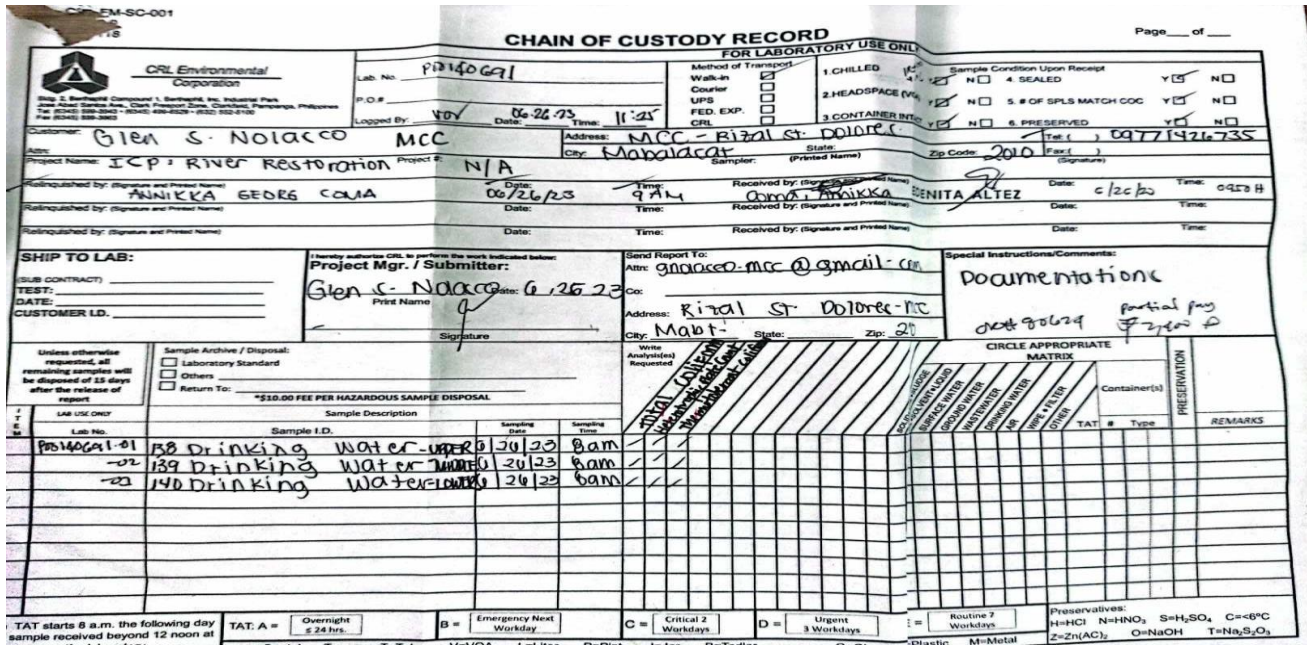 EM-SC-001
CHAIN OF CUSTODY RECORD
Page___ of ___
FOR LABORATORY USE ONLY
CRL Environmental
Corporation
Clark Freeport Zone, Clarkfield, Pampanga, Philippines
Lab. No.
P.O.#
Logged By: Date: 06-26-23 Time: 11:25
Method of Transport
Walk-in
Courier
UPS
FED. EXP.
CRL
1.CHILLED
2.HEADSPACE
3.CONTAINER
Sample Condition Upon Receipt
Y N 4. SEALED Y N
Y N 5. # OF SPLS MATCH COC Y N
Y N 6. PRESERVED Y N
Customer: Glen S. Nolacco MCC
Attn:
Address: MCC - Rizal St. Dolores.
Tel: ( ) 09771426735
City: Mabalacat State: Zip Code: 2010 Fax: ( )
Project Name: ICP: River Restoration Project #: N/A
Sampler: (Printed Name) (Signature)
Relinquished by: (Signature and Printed Name) Date: Time: Received by: (Signature and Printed Name) Date: Time:
ANNIKKA GEORG COMA 06/26/23 9 AM Coma, Annikka EDENITA ALTEZ 0950 H
Relinquished by: (Signature and Printed Name) Date: Time: Received by: (Signature and Printed Name) Date: Time:
Relinquished by: (Signature and Printed Name) Date: Time: Received by: (Signature and Printed Name) Date: Time:
SHIP TO LAB:
(SUB CONTRACT)
TEST:
DATE:
CUSTOMER I.D.
I hereby authorize CRL to perform the work indicated below:
Project Mgr. / Submitter:
Glen S. Nolacco Date:
Print Name
Signature
Send Report To:
Attn: gnolacco.mcc@gmail.com
Co:
Address: Rizal St Dolores-MCC
City: Mabt. State: Zip: 20
Special Instructions/Comments:
Documentations
partial pay
Unless otherwise
requested, all
remaining samples will
be disposed of 15 days
after the release of
report
Sample Archive / Disposal:
Laboratory Standard
Others
Return To:
*$10.00 FEE PER HAZARDOUS SAMPLE DISPOSAL
Write
Analysis(es)
Requested
Total Coliform
Heterotrophic Plate Count
Thermotolerant Coliform
CIRCLE APPROPRIATE
MATRIX
SURFACE WATER
GROUND WATER
WASTEWATER
DRINKING WATER
AIR
WIPE FILTER
OTHER
TAT
Container(s)
# Type
PRESERVATION
REMARKS
ITEM
LAB USE ONLY
Lab No.
Sample Description
Sample I.D.
Sampling
Date
Sampling
Time
138 Drinking Water-UPPER 6|26|23 8am
-02 139 Drinking Water MIDDLE 6|26|23 8am
-03 140 Drinking Water-LOWER 6|26|23 8am
TAT starts 8 a.m. the following day
sample received beyond 12 noon at
TAT: A = Overnight
≤ 24 hrs.
B = Emergency Next
Workday
C = Critical 2
Workdays
D = Urgent
3 Workdays
= Routine 7
Workdays
Preservatives:
H=HCl N=HNO₃ S=H₂SO₄ C=<6°C
Z=Zn(AC)₂ O=NaOH T=Na₂S₂O₃
M=Metal